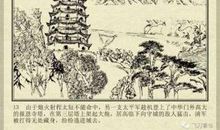 13 由于炮火射程太短不能命中，另一支太平军趁机登上了中华门外高大
的报恩寺塔，在第三层塔上架起大炮，居高临下向守城的敌人猛击，清军
被打得无处藏身，纷纷逃进城去。